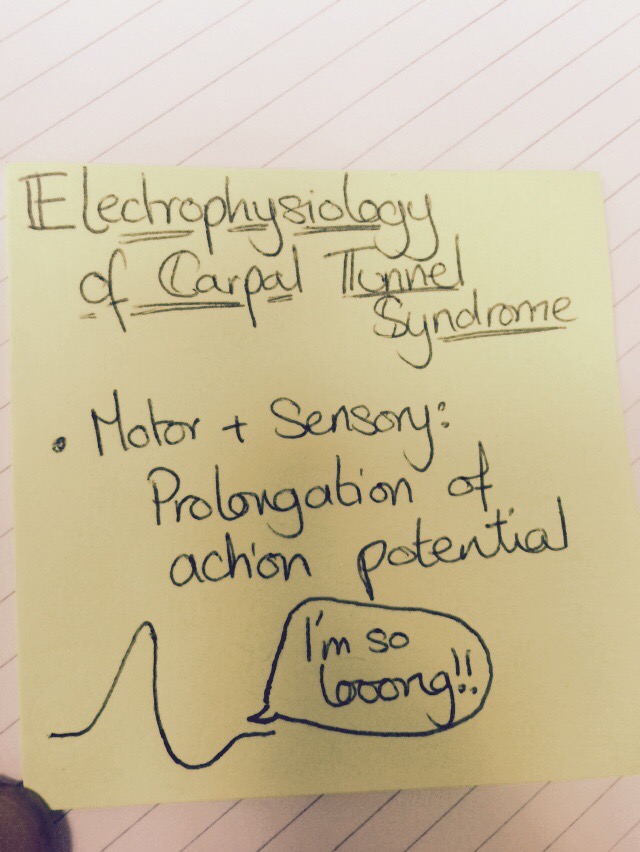 Electrophysiology
of Carpal Tunnel
Syndrome
• Motor + Sensory:
Prolongation of
action potential
I'm so
looong!!